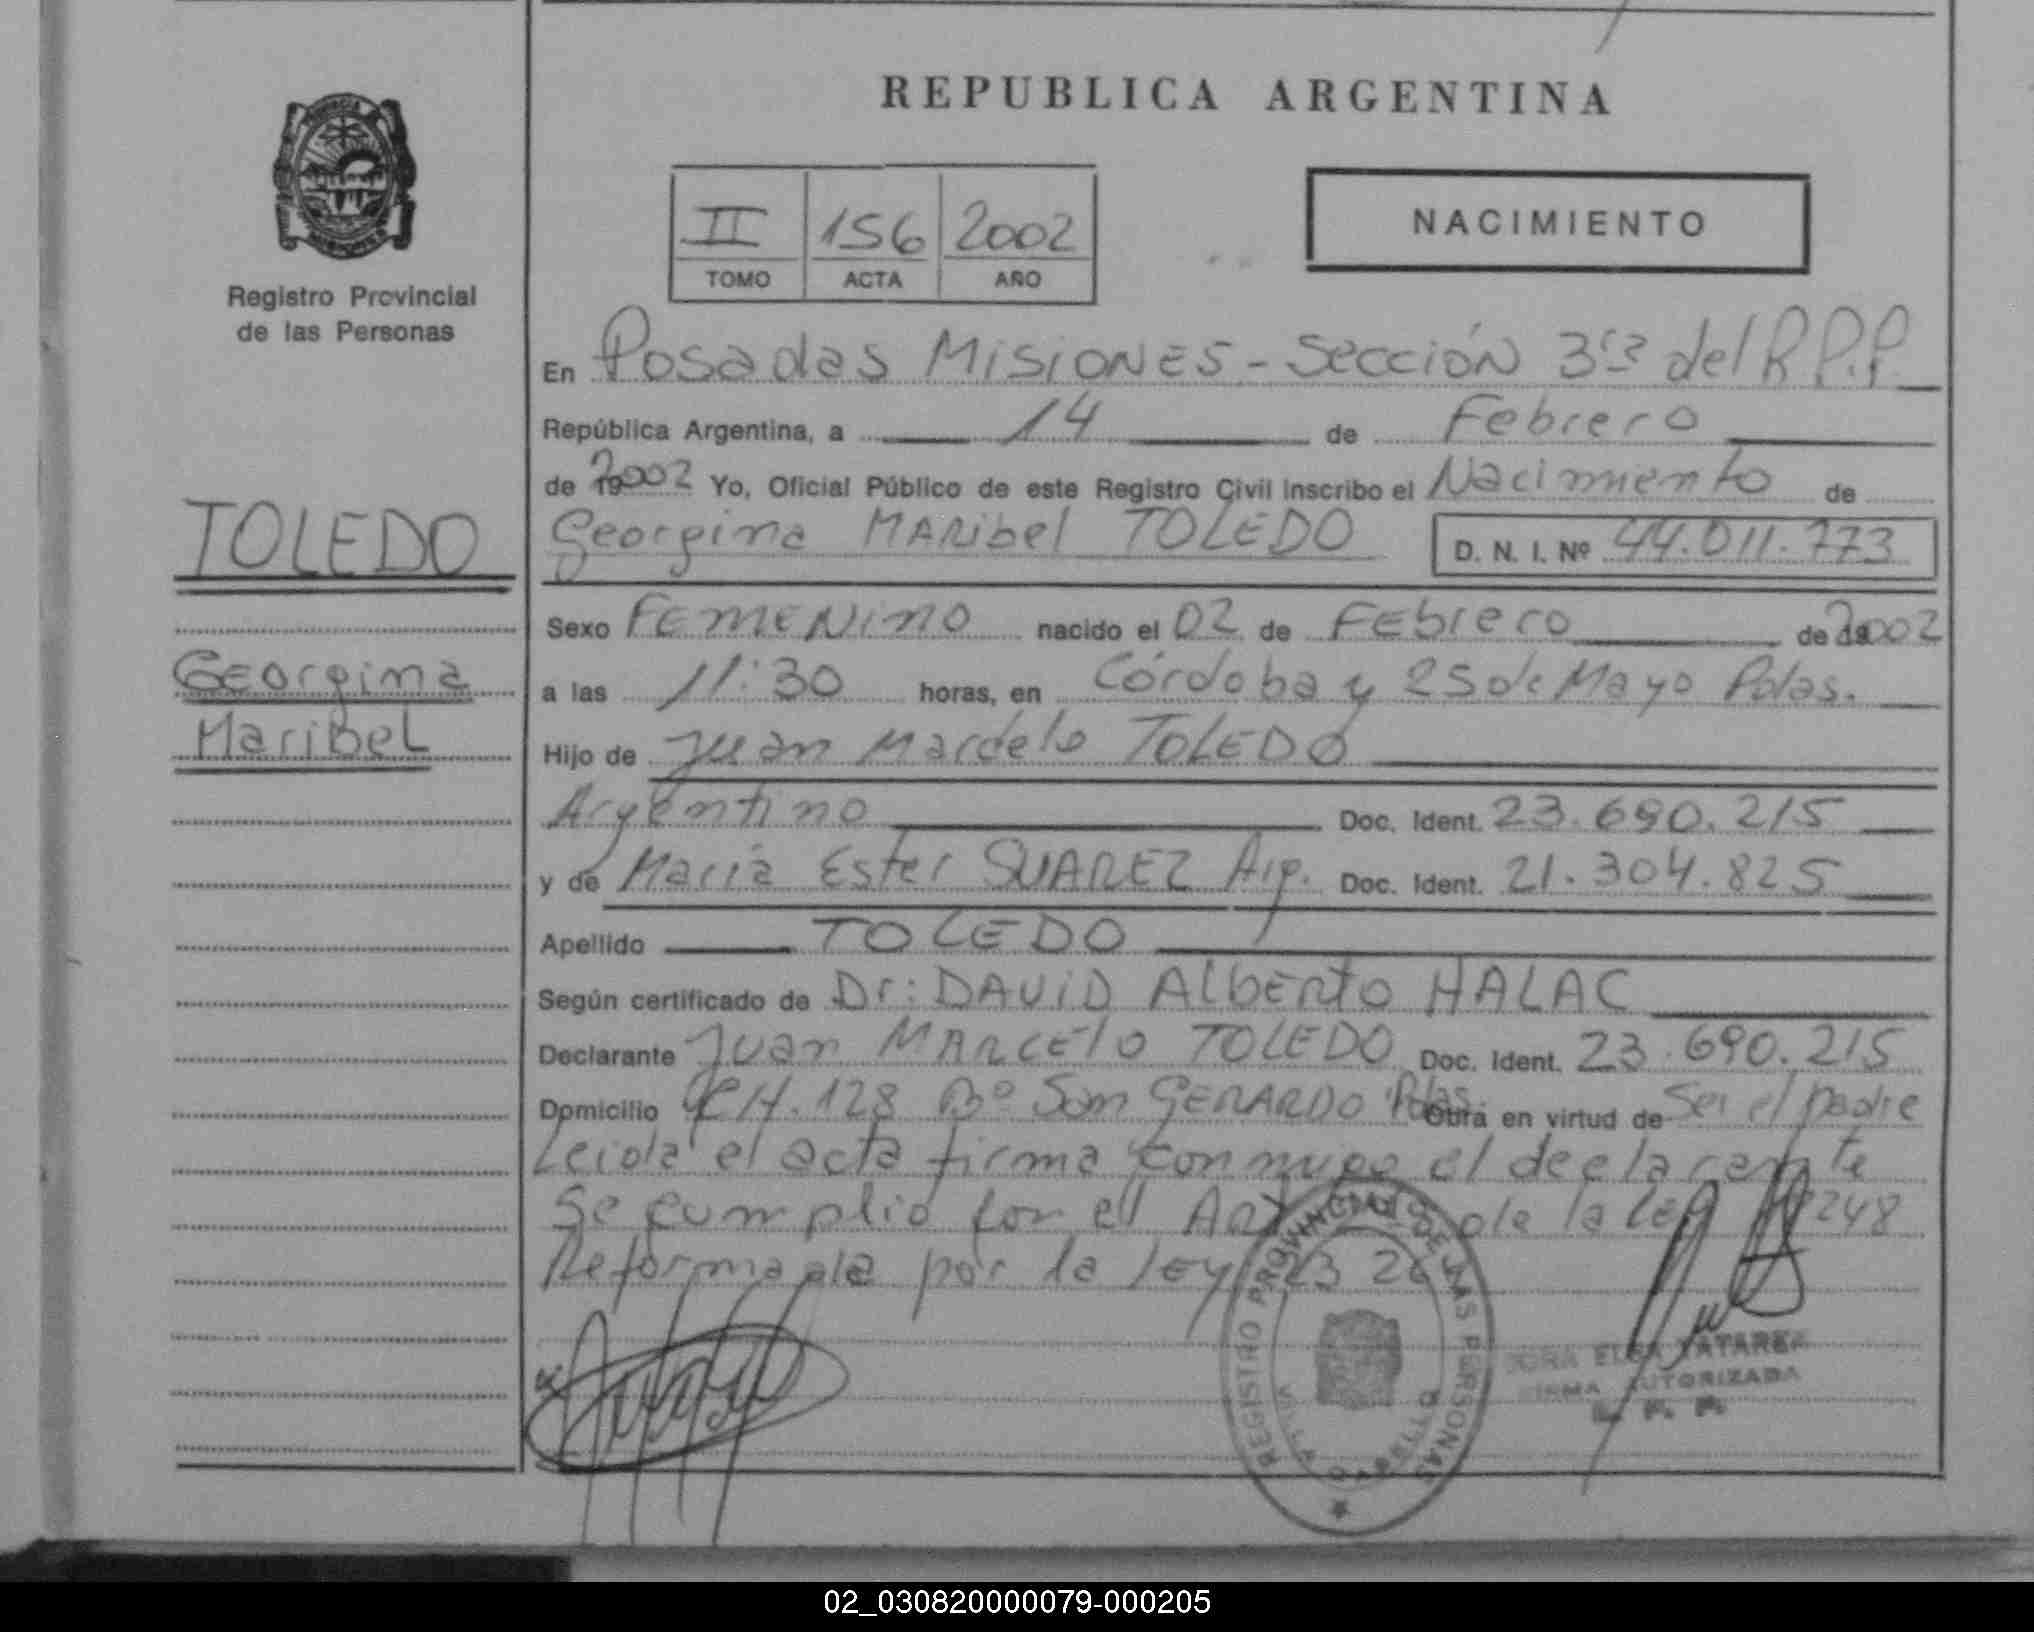 REPUBLICA ARGENTINA
II 156 2002
TOMO ACTA AÑO
NACIMIENTO
Registro Provincial
de las Personas
TOLEDO
Georgina
Maribel
En Posadas Misiones - Sección 3ra del R.P.P.
República Argentina, a 14 de Febrero
de 2002 Yo, Oficial Público de este Registro Civil inscribo el Nacimiento de
Georgina Maribel TOLEDO D. N. I. Nº 44.011.773
Sexo Femenino nacido el 02 de Febrero de 2002
a las 11:30 horas, en Córdoba y 25 de Mayo Pdas.
Hijo de Juan Marcelo TOLEDO
Argentino Doc. Ident. 23.690.215
y de María Ester SUAREZ Arg. Doc. Ident. 21.304.825
Apellido TOLEDO
Según certificado de Dr: DAVID Alberto HALAC
Declarante Juan Marcelo TOLEDO Doc. Ident. 23.690.215
Domicilio CH. 128 Bº San Gerardo Pdas. Obra en virtud de Ser el padre
Leida el acta firma conmigo el declarante
Se cumplio con el Art de la Ley 248
Reformada por la Ley 23 264
REGISTRO PROVINCIAL DE LAS PERSONAS
VILLA CABELLO
ELSA
FIRMA AUTORIZADA
R. P. P.
02_030820000079-000205